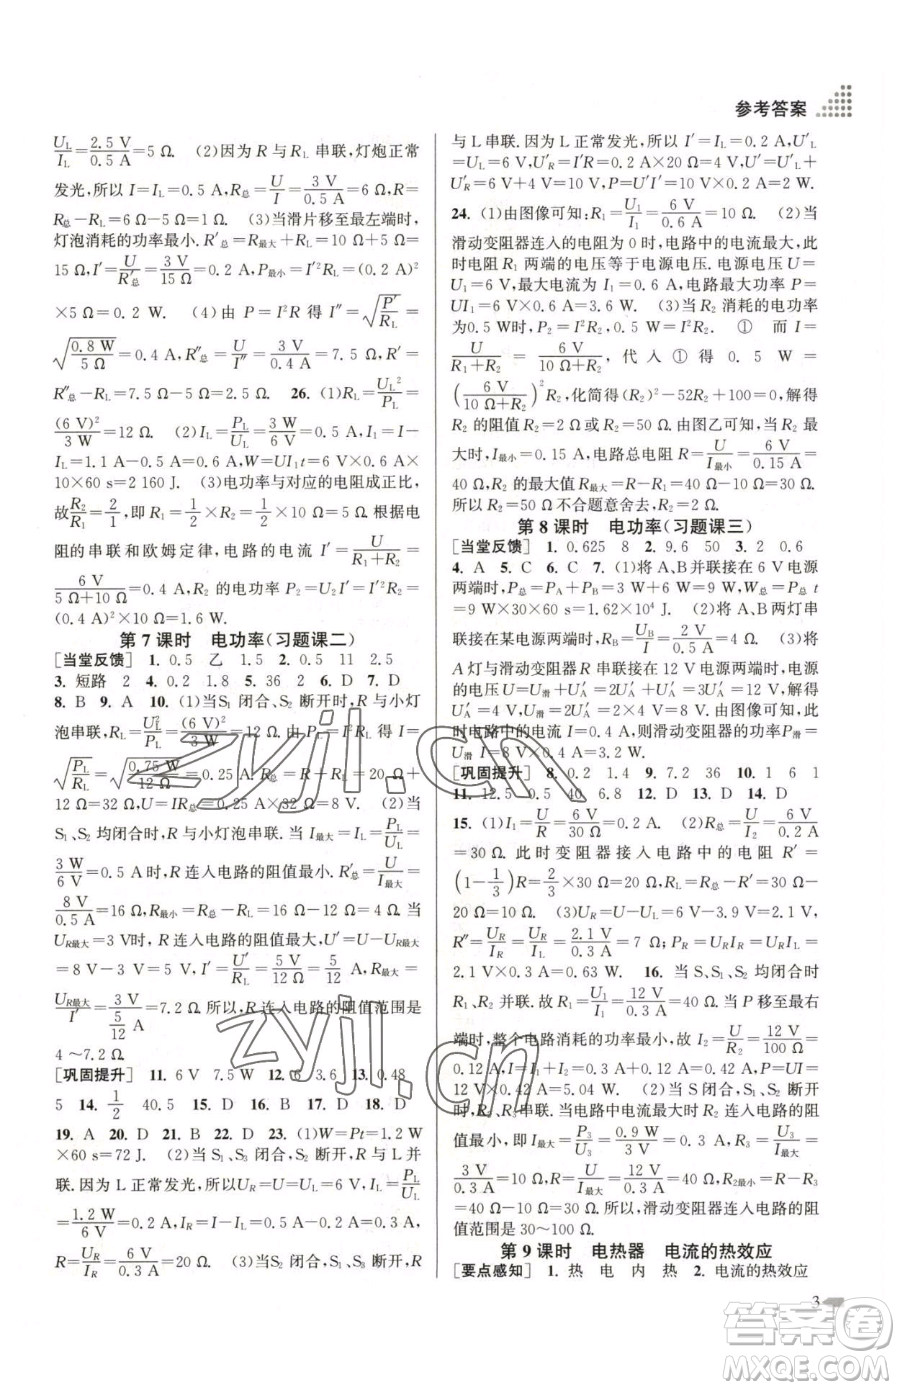 参考答案
U_L/I_L=2.5 V/0.5 A=5 Ω. (2)因为 R 与 R_L 串联,灯炮正常
发光,所以 I=I_L=0.5 A,R_总=U/I=3 V/0.5 A=6 Ω,R=
R_总-R_L=6 Ω-5 Ω=1 Ω. (3)当滑片移至最左端时,
灯泡消耗的功率最小. R′_总=R_最大+R_L=10 Ω+5 Ω=
15 Ω,I′=U/R′_总=3 V/15 Ω=0.2 A,P_最小=I′²R_L=(0.2 A)²
×5 Ω=0.2 W. (4)由 P=I²R 得 I″=√(P′/R_L)=
√(0.8 W/5 Ω)=0.4 A,R″_总=U/I″=3 V/0.4 A=7.5 Ω,R″=
R″_总-R_L=7.5 Ω-5 Ω=2.5 Ω 26. (1)R_L=U_L²/P_L=
(6 V)²/3 W=12 Ω. (2)I_L=P_L/U_L=3 W/6 V=0.5 A,I_1=I-
I_L=1.1 A-0.5 A=0.6 A,W=UI_1t=6 V×0.6 A×
10×60 s=2 160 J. (3)电功率与对应的电阻成正比,
故R_2/R_1=2/1,即 R_1=1/2×R_2=1/2×10 Ω=5 Ω. 根据电
阻的串联和欧姆定律,电路的电流 I′=U/(R_1+R_2)=
6 V/(5 Ω+10 Ω)=0.4 A,R_2 的电功率 P_2=U_2I′=I′²R_2=
(0.4 A)²×10 Ω=1.6 W.
第 7 课时 电功率(习题课二)
[当堂反馈] 1. 0.5 乙 1.5 2. 0.5 11 2.5
3. 短路 2 4. 0.2 1.8 5. 2 6. D 7. D
8. B 9. A 10. (1)当 S 闭合,S_1、S_2 断开时,R 与小灯
泡串联,R_L=U_L²/P_L=(6 V)²/3 W=12 Ω. 由题意得 I=
√(P_L/R_L)=√(0.75 W/12 Ω)=0.25 A,R_总=R+R_L=20 Ω+
12 Ω=32 Ω,U=IR_总=0.25 A×32 Ω=8 V. (2)当 S、
S_1、S_2 均闭合时,R 与小灯泡串联. 当 I_最大=P_L/U_L=
3 W/6 V=0.5 A 时,R 连入电路的阻值最小. R′_总=U/I_最大=
8 V/0.5 A=16 Ω,R_最小=R′_总-R_L=16 Ω-12 Ω=4 Ω. 当
U_R最大=3 V时,R 连入电路的阻值最大. U′=U-U_R最大=
8 V-3 V=5 V,I′=U′/R_L=5 V/12 Ω=5/12 A,R_最大=
U_R最大/I′=3 V/(5/12 A)=7.2 Ω. 所以,R 连入电路的阻值范围是
4～7.2 Ω.
[巩固提升] 11. 6 V 7.5 W 12. 6 3.6 13. 0.48
5 14. 1/2 40.5 15. D 16. D 17. D 18. D
19. A 20. D 21. B 22. D 23. (1)W=Pt=1.2 W
×60 s=72 J. (2)当 S、S_1 闭合,S_2 断开时,R 与 L 并
联. 因为 L 正常发光,所以 U_R=U=U_L=6 V,I_L=P_L/U_L
=1.2 W/6 V=0.2 A,I_R=I-I_L=0.5 A-0.2 A=0.3 A,
R=U_R/I_R=6 V/0.3 A=20 Ω. (3)当 S_2 闭合,S、S_1 断开时,R
与 L 串联. 因为 L 正常发光,所以 I′=I_L=0.2 A,U′_L
=U_L=6 V,U′_R=I′R=0.2 A×20 Ω=4 V,U′=U′_L+
U′_R=6 V+4 V=10 V. P=U′I′=10 V×0.2 A=2 W.
24. (1)由图像可知:R_1=U_1/I_1=6 V/0.6 A=10 Ω. (2)当
滑动变阻器连入的电阻为 0 时,电路中的电流最大,此
时电阻 R_1 两端的电压等于电源电压. 电源电压 U=U_1
=6 V,最大电流为 I_1=0.6 A,电路最大电功率 P=
UI_1=6 V×0.6 A=3.6 W. (3)当 R_2 消耗的电功率
为0.5 W时,P_2=I²R_2,即 0.5 W=I²R_2. ① 而 I=
U/(R_1+R_2)=6 V/(10 Ω+R_2),代入①得 0.5 W=
(6 V/(10 Ω+R_2))²R_2,化简得(R_2)²-52R_2+100=0,解得
R_2 的阻值 R_2=2 Ω 或 R_2=50 Ω. 由图乙可知,当 R_2 最
大时,I_最小=0.15 A,电路总电阻 R_最大=U/I_最小=6 V/0.15 A=
40 Ω,R_2 的最大值 R_大=R_最大-R_1=40 Ω-10 Ω=30 Ω.
所以 R_2=50 Ω不合题意舍去,R_2=2 Ω.
第 8 课时 电功率(习题课三)
[当堂反馈] 1. 0.625 8 2. 9.6 50 3. 2 0.6
4. A 5. C 6. C 7. (1)将 A、B 并联接在 6 V 电源
两端时,P_总=P_A+P_B=6 W+3 W=9 W,W=P_总 t
=9 W×30×60 s=1.62×10⁴ J. (2)将 A、B 两灯
串联接在某电源两端时,I_B=U_B/R_B=4 V/10 Ω=0.4 A. (3)将
A 灯与滑动变阻器 R 串联接在 12 V 电源两端时,电
源电压 U=U_滑+U′_A=2U′_A+U′_A=12 V. 由图像可知,
此时电路中的电流 I=0.4 A,则滑动变阻器的功率 P_滑=U_滑I=8 V×0.4 A=3.2 W.
[巩固提升] 8. 0.2 1.4 9. 7.2 36 10. 1 6 1
11. 12.5 0.5 40 6.8 12. D 13. D 14. D
15. (1)I_1=U/R=6 V/30 Ω=0.2 A. (2)R_总=U/I_2=6 V/0.2 A
=30 Ω. 此时变阻器接入电路中的电阻 R′=
(1-1/3)R=2/3×30 Ω=20 Ω,R_L=R_总-R′=30 Ω-
20 Ω=10 Ω. (3)U_R=U-U_L=6 V-3.9 V=2.1 V,
R″=U_R/I_R=2.1 V/0.3 A=7 Ω; P_R=U_RI_R=U_RI_L=
2.1 V×0.3 A=0.63 W. 16. 当 S、S_1、S_2 均闭合时
R_1、R_2 并联. 故 R_1=U_1/I_1=12 V/0.3 A=40 Ω. 当 P 移至最右
端时,整个电路消耗的功率最小,故 I_2=U/R_2=12 V/100 Ω=
0.12 A,I=I_1+I_2=0.3 A+0.12 A=0.42 A,P_最小=UI
=12 V×0.42 A=5.04 W. (2)当 S 闭合,S_1、S_2 断开
时,R_1、R_2、L 串联. 当电路中电流最大时 R_2 连入电路的阻
值最小,即 I_最大=P_3/U_3=0.9 W/3 V=0.3 A,R_3=U_3/I_最大=
3 V/0.3 A=10 Ω,R_总=U/I_最大=12 V/0.3 A=40 Ω,R_2最小=R_总-R_1-R_3
=40 Ω-10 Ω=30 Ω,所以,滑动变阻器连入电路的阻
值范围是 30～100 Ω.
第 9 课时 电热器 电流的热效应
[要点感知] 1. 热 电 内 热 2. 电流的热效应
3
zyjl.cn
zyjl.cn
答案圈
MXQE.COM